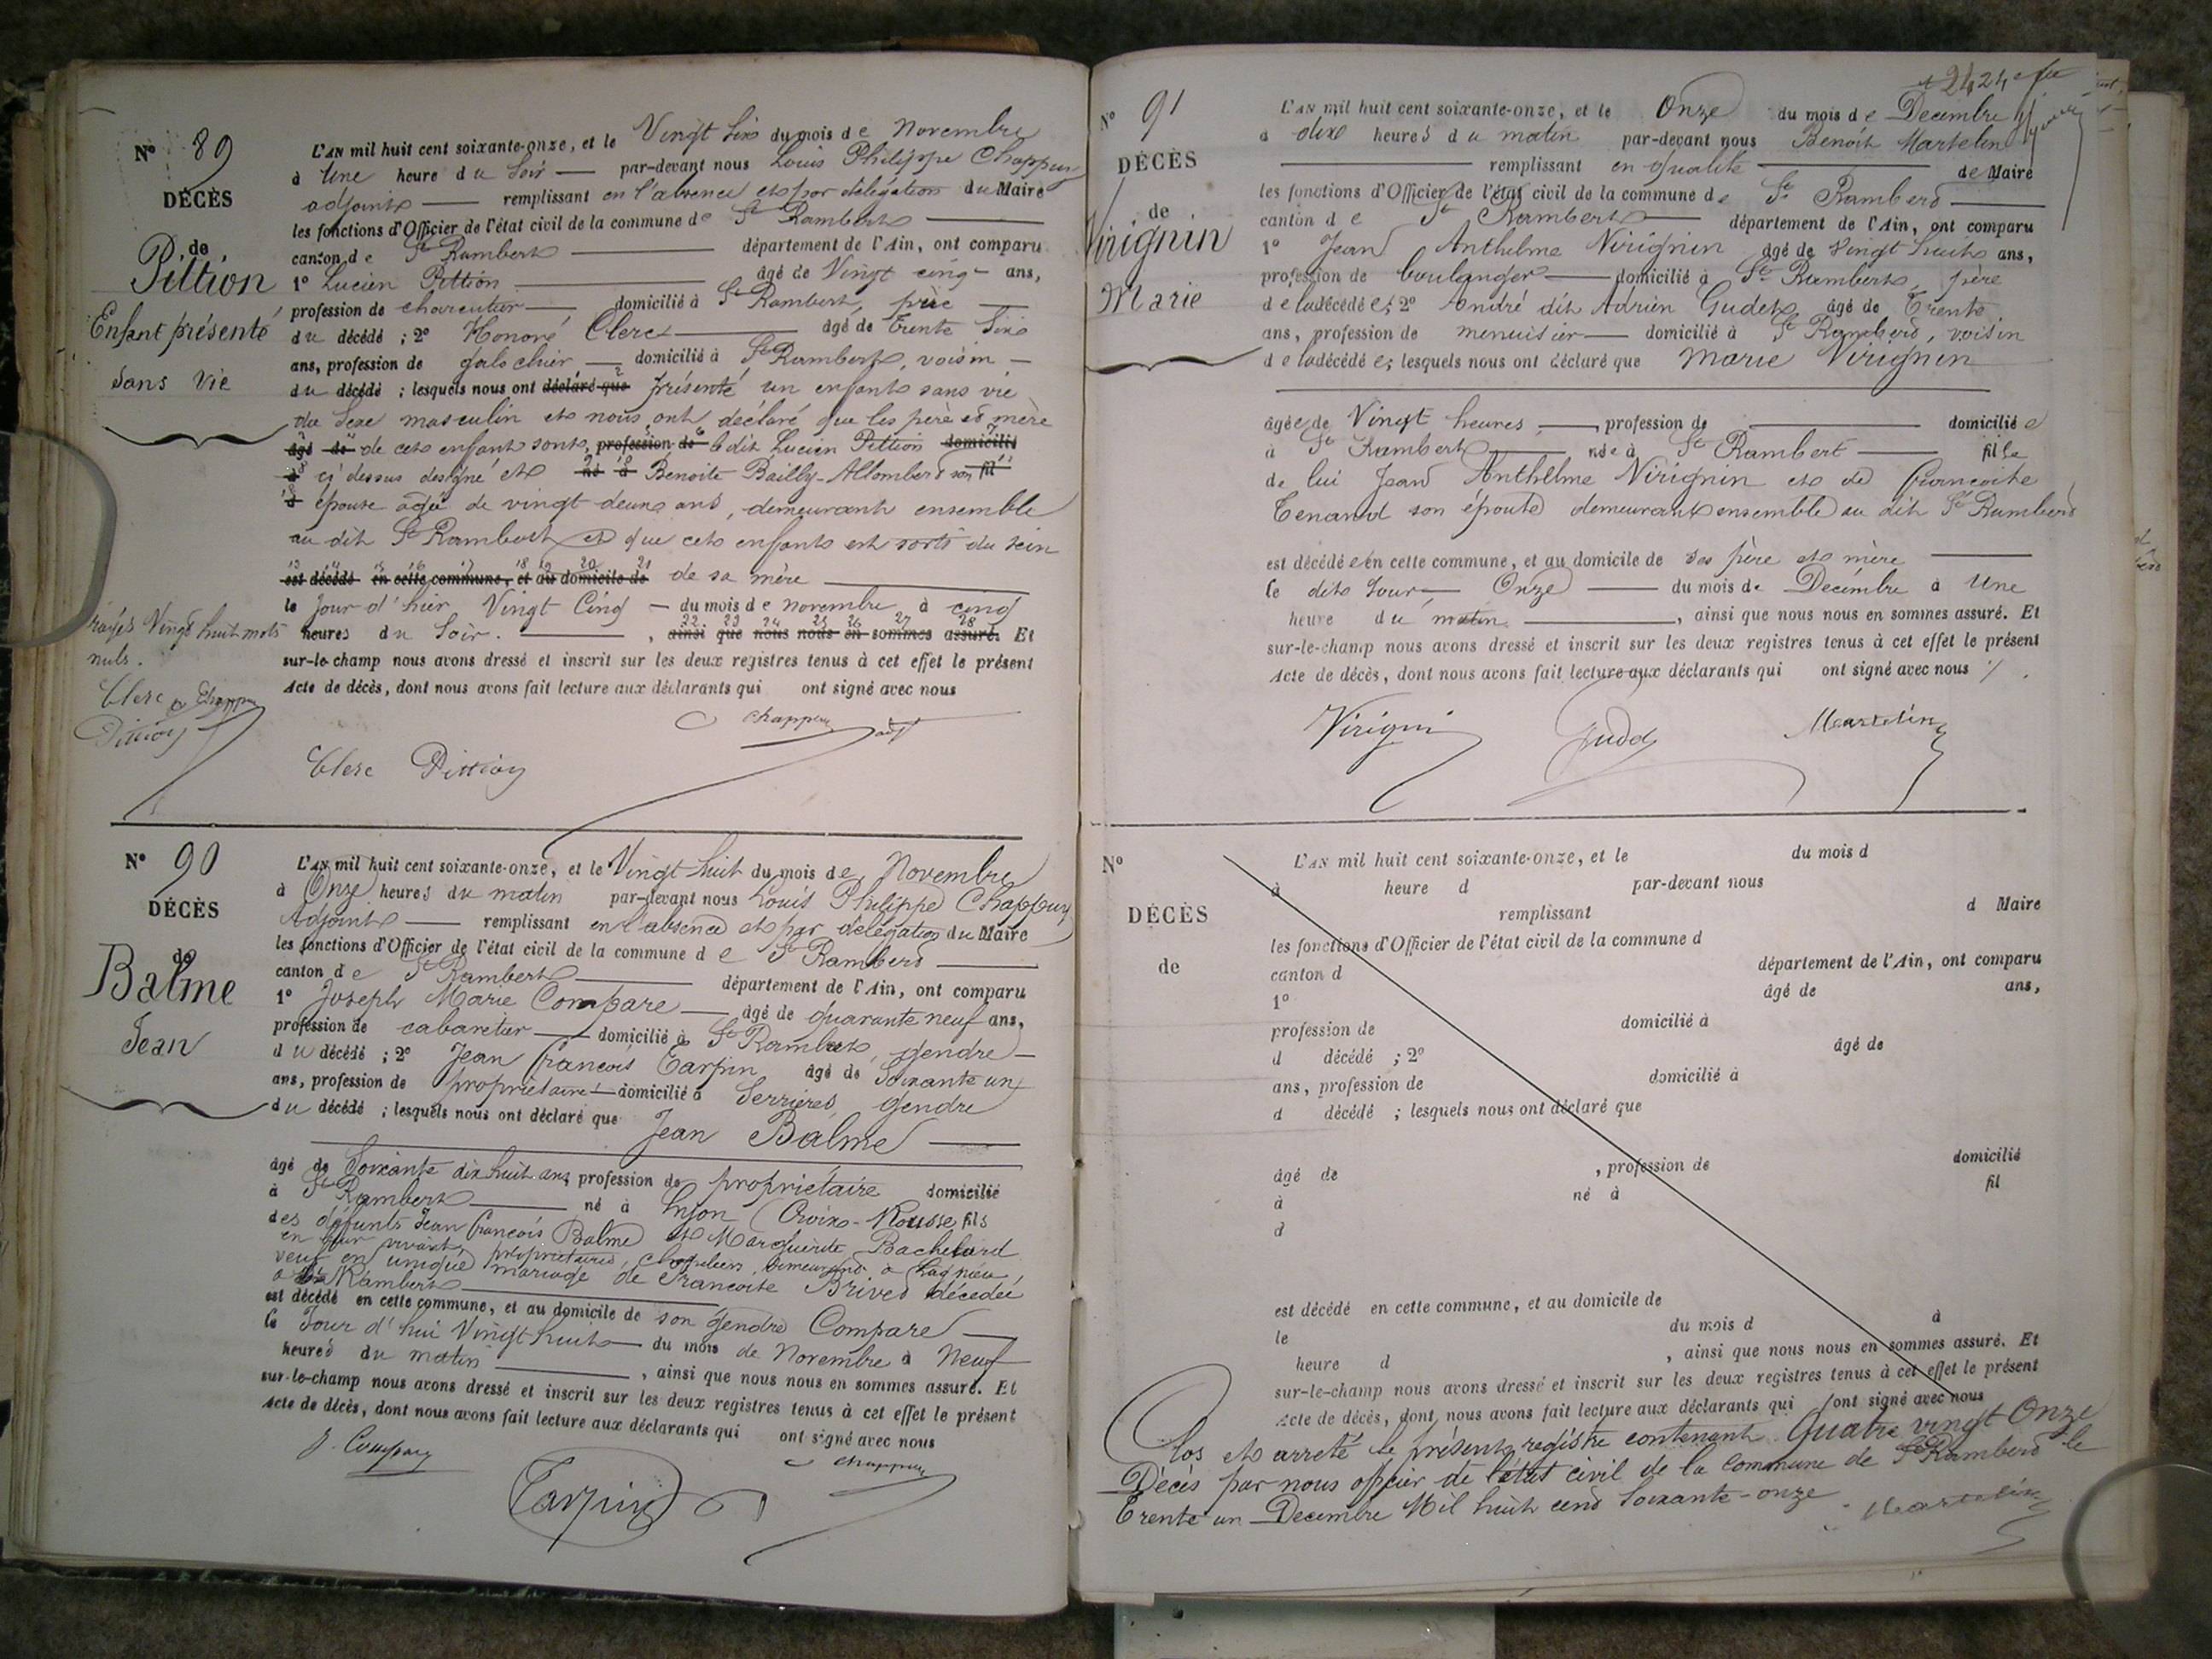 N° 89
DÉCÈS
de
Pittion
Enfant présenté
sans vie
L'AN mil huit cent soixante-onze, et le Vingt Six du mois de Novembre
à Une heure du Soir par-devant nous Louis Philippe Chappuy
adjoint remplissant en l'absence et par délégation du Maire
les fonctions d'Officier de l'état civil de la commune de St Rambert
canton de St Rambert département de l'Ain, ont comparu
1° Lucien Pittion âgé de Vingt cinq ans,
profession de charcutier domicilié à St Rambert, père
du décédé ; 2° Honoré Clerc âgé de Trente Six
ans, profession de galochier domicilié à St Rambert, voisin
du décédé ; lesquels nous ont déclaré que présenté un enfant sans vie
du Sexe masculin et nous ont déclaré que les père et mère
âgé de de cet enfant sont, profession de le dit Lucien Pittion domicilié
à ci dessus designé et né à Benoite Bailly-Allombert son fil
d épouse agée de vingt deux ans, demeurant ensemble
au dit St Rambert et que cet enfant est sorti du sein
est décédé en cette commune, et au domicile de de sa mère
le Jour d'hier Vingt Cinq du mois de novembre à cinq
heures du Soir. , ainsi que nous nous en sommes assuré. Et
sur-le-champ nous avons dressé et inscrit sur les deux registres tenus à cet effet le présent
Acte de décès, dont nous avons fait lecture aux déclarants qui ont signé avec nous
rayés Vingt huit mots
nuls.
Clerc Chappuy
Pittion
Chappuy adjt
Clerc Pittion
N° 90
DÉCÈS
de
Balme
Jean
L'AN mil huit cent soixante-onze, et le Vingt huit du mois de Novembre
à Onze heures du matin par-devant nous Louis Philippe Chappuy
Adjoint remplissant en l'absence et par délégation du Maire
les fonctions d'Officier de l'état civil de la commune de St Rambert
canton de St Rambert département de l'Ain, ont comparu
1° Joseph Marie Compare âgé de quarante neuf ans,
profession de cabaretier domicilié à St Rambert, gendre
du décédé ; 2° Jean François Tarpin âgé de Soixante un
ans, profession de propriétaire domicilié à Serrières, gendre
du décédé ; lesquels nous ont déclaré que Jean Balme
âgé de Soixante dix huit ans, profession de propriétaire domicilié
à St Rambert né à Lyon (Croix-Rousse fils
des défunts Jean François Balme et Marguerite Bachelard
en leur vivant propriétaires, chapeliers demeurant à Lagnieu,
veuf en unique mariage de Francoise Brived décédée
à St Rambert
est décédé en cette commune, et au domicile de son gendre Compare
le Jour d'hui Vingt huit du mois de Novembre à Neuf
heures du matin , ainsi que nous nous en sommes assuré. Et
sur-le-champ nous avons dressé et inscrit sur les deux registres tenus à cet effet le présent
Acte de décès, dont nous avons fait lecture aux déclarants qui ont signé avec nous
J. Compare
Chappuy
Tarpin
24
N° 91
DÉCÈS
de
Virignin
Marie
L'AN mil huit cent soixante-onze, et le Onze du mois de Decembre
à dix heures du matin par-devant nous Benoît Martelin
remplissant en qualité de Maire
les fonctions d'Officier de l'état civil de la commune de St Rambert
canton de St Rambert département de l'Ain, ont comparu
1° Jean Anthelme Virignin âgé de Vingt huit ans,
profession de boulanger domicilié à St Rambert, père
de la décédée; 2° André dit Adrien Gudet âgé de Trente
ans, profession de menuisier domicilié à St Rambert, voisin
de la décédée; lesquels nous ont déclaré que Marie Virignin
âgée de Vingt heures, profession de domiciliée
à St Rambert née à St Rambert fille
de lui Jean Anthelme Virignin et de Francoise
Tenand son épouse demeurant ensemble au dit St Rambert
est décédée en cette commune, et au domicile de ses père et mère
le dit Jour Onze du mois de Decembre à Une
heure du matin , ainsi que nous nous en sommes assuré. Et
sur-le-champ nous avons dressé et inscrit sur les deux registres tenus à cet effet le présent
Acte de décès, dont nous avons fait lecture aux déclarants qui ont signé avec nous
Virignin Gudet Martelin
N°
DÉCÈS
de
L'AN mil huit cent soixante-onze, et le du mois d
à heure d par-devant nous
remplissant d Maire
les fonctions d'Officier de l'état civil de la commune d
canton d département de l'Ain, ont comparu
1° âgé de ans,
profession de domicilié à
d décédé ; 2° âgé de
ans, profession de domicilié à
d décédé ; lesquels nous ont déclaré que
âgé de , profession de domicilié
à né à fil
d
est décédé en cette commune, et au domicile de
le du mois d à
heure d , ainsi que nous nous en sommes assuré. Et
sur-le-champ nous avons dressé et inscrit sur les deux registres tenus à cet effet le présent
Acte de décès, dont nous avons fait lecture aux déclarants qui ont signé avec nous
Clos et arreté le présent registre contenant Quatre vingt Onze
Décès par nous officier de l'état civil de la commune de St Rambert le
Trente un Decembre Mil huit cent Soixante-onze
Martelin